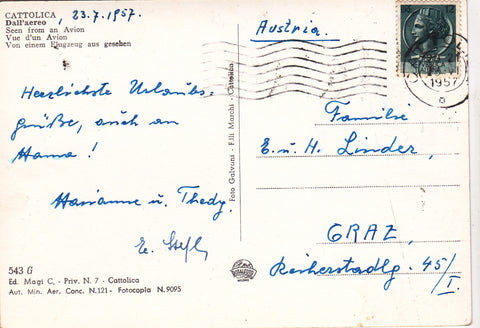 CATTOLICA, 23.7.1957.
Dall'aereo
Seen from an Avion
Vue d'un Avion
Von einem Flugzeug aus gesehen
Herzlichste Urlaubs-
grüße, auch an
Mama!
Marianne u. Thedy.
543 G
Ed. Magi C. - Priv. N. 7 - Cattolica
Aut. Min. Aer. Conc. N.121 - Fotocopia N.9095
Foto Galvani - F.lli Marchi - Cattolica
Austria.
1957
Familie
E. u. H. Linder,
GRAZ,
45/
I.